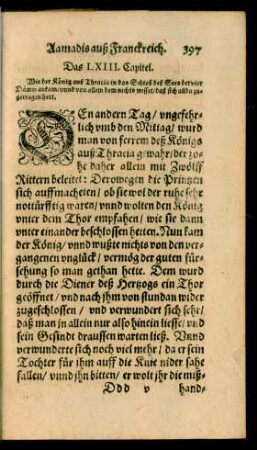 Aamadis auß Franckreich. 397
Das LXIII. Capitel.
Wie der König auß Thracia in das Schloß des Sees der vier
Dämm ankam/ vnnd von allem dem nichts wisset/ daß sich allda zu-
getragen hett.
DEn andern Tag/ vngefehr-
lich vmb den Mittag/ wurd
man von ferrem deß Königs
auß Thracia gewahr/ der zo-
he daher allein mit Zwölff
Rittern beleitet: Derowegen die Printzen
sich auffmacheten/ ob sie wol der ruhe sehr
notturfftig waren/ vnnd wolten den König
vnter dem Thor empfahen/ wie sie dann
vnter einander beschlossen hetten. Nun kam
der König/ vnnd wußte nichts von den ver-
gangenen vnglück/ vermög der guten für-
sehung so man gethan hette. Dem wurd
durch die Diener deß Hertzogs ein Thor
geöffnet/ vnd nach jhm von stundan wider
zugeschlossen/ vnd verwundert sich sehr/
daß man in allein nur also hinein liesse/ vnd
sein Gesindt draussen warten ließ. Vnnd
verwunderte sich noch viel mehr/ da er sein
Tochter für jhm auff die Knie nider sahe
fallen/ vnnd jhn bitten/ er wolt jhr die miß-
Ddd v hand-